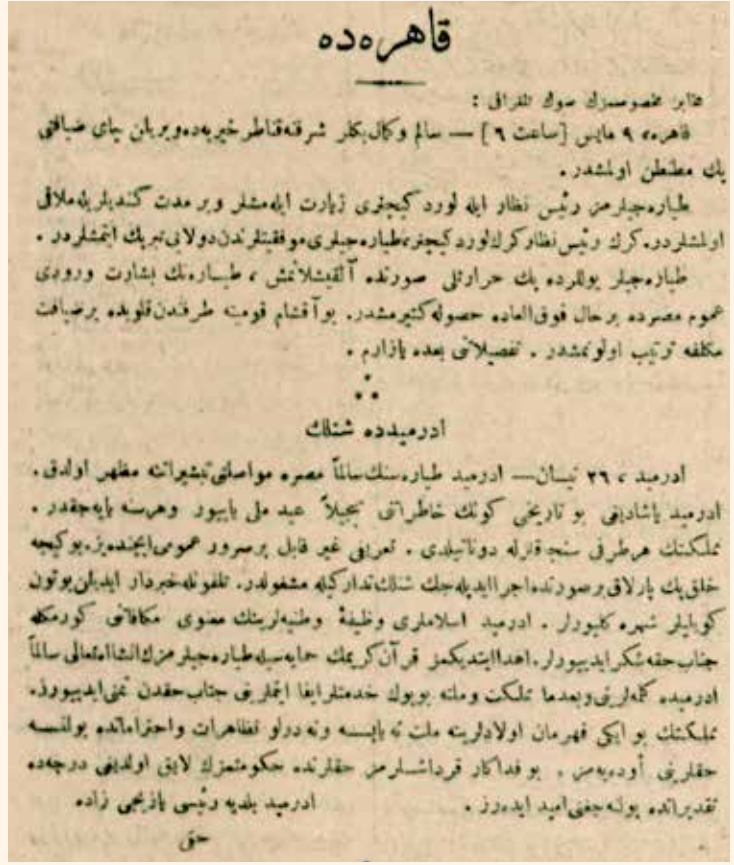 قاهره‌ده
مخابر مخصوصمزك صوك تلغرافی :
قاهره، ٩ مایس [ساعت ٦] — سالم وكمال بكلر شرفنه قناطر خیریه‌ده ویریلن چای ضیافتی
پك مطنطن اولمشدر .
طیاره‌جیلرمز رئیس نظار ایله لورد كیچنری زیارت ایله‌مشلر وبر مدت كندیلریله ملاقی
اولمشلردر. كرك رئیس نظار كرك لورد كیچنر، طیاره‌جیلری موفقیتلرندن دولایی تبریك ایتمشلردر .
طیاره‌جیلر یوللرده پك حرارتلی صورتده آلقیشلانمش ، طیاره‌نك بشارت ورودی
عموم مصرده برحال فوق‌العاده حصوله كتیرمشدر. بو آقشام قومیته طرفندن قلوبده برضیافت
مكلفه ترتیب اولونمشدر . تفصیلاتی بعده یازارم .
ادرمیدده شنلك
ادرمید ، ٢٦ نیسان — ادرمید طیاره‌سنك سالماً مصره مواصلتی تبشیراتنه مظهر اولدق .
ادرمید یاشادیغی بو تاریخی كونك خاطراتی تبجیلاً عید ملی یاپیور وهرسنه یاپه‌جقدر .
مملكتك هرطرفی سنجقلرله دوناتیلدی . تعریفی غیر قابل برسرور عمومی ایچنده‌یز. بوكیجه
خلق پك پارلاق برصورتده اجرا ایدیله‌جك شنلك تداركیله مشغولدر. تلفونله خبردار ایدیلن بوتون
كویلیلر شهره كلیورلر . ادرمید اسلاملری وظیفهٔ وطنیه‌لرینك معنوی مكافاتی كورمكله
جناب حقه شكر ایدیورلر. اهدا ایتدیكمز قرآن كریمك حمایه‌سیله طیاره‌جیلرمزك انشاءالله تعالی سالماً
ادرمیده كلمه‌لرینی وبعدما مملكت وملته بویوك خدمتلر ایفا ایتملرینی جناب حقدن تمنی ایدییورز.
مملكتك بو ایكی قهرمان اولادلرینه ملت نه یاپسه ونه درلو تظاهرات واحتراماتده بولنسه
حقلرینی اوده‌یه‌مز . بو فداكار قرداشلرمز حقلرنده حكومتمزك لایق اولدیغی درجه‌ده
تقدیراتده بولنه‌جغنی امید ایده‌رز .
ادرمید بلدیه رئیسی یازیجی زاده
حقی